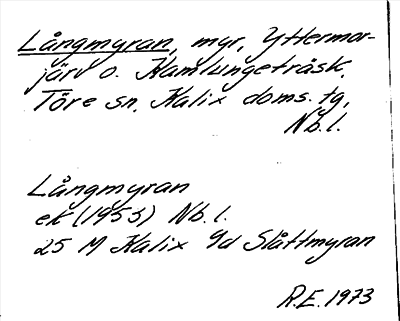 Långmyran, myr, Yttermor-
järv o. Kamlungeträsk,
Töre sn, Kalix doms. tg,
Nb.l.
Långmyran
ek (1953) Nb.l.
25 M Kalix Gd Slåttmyran
R.E. 1973